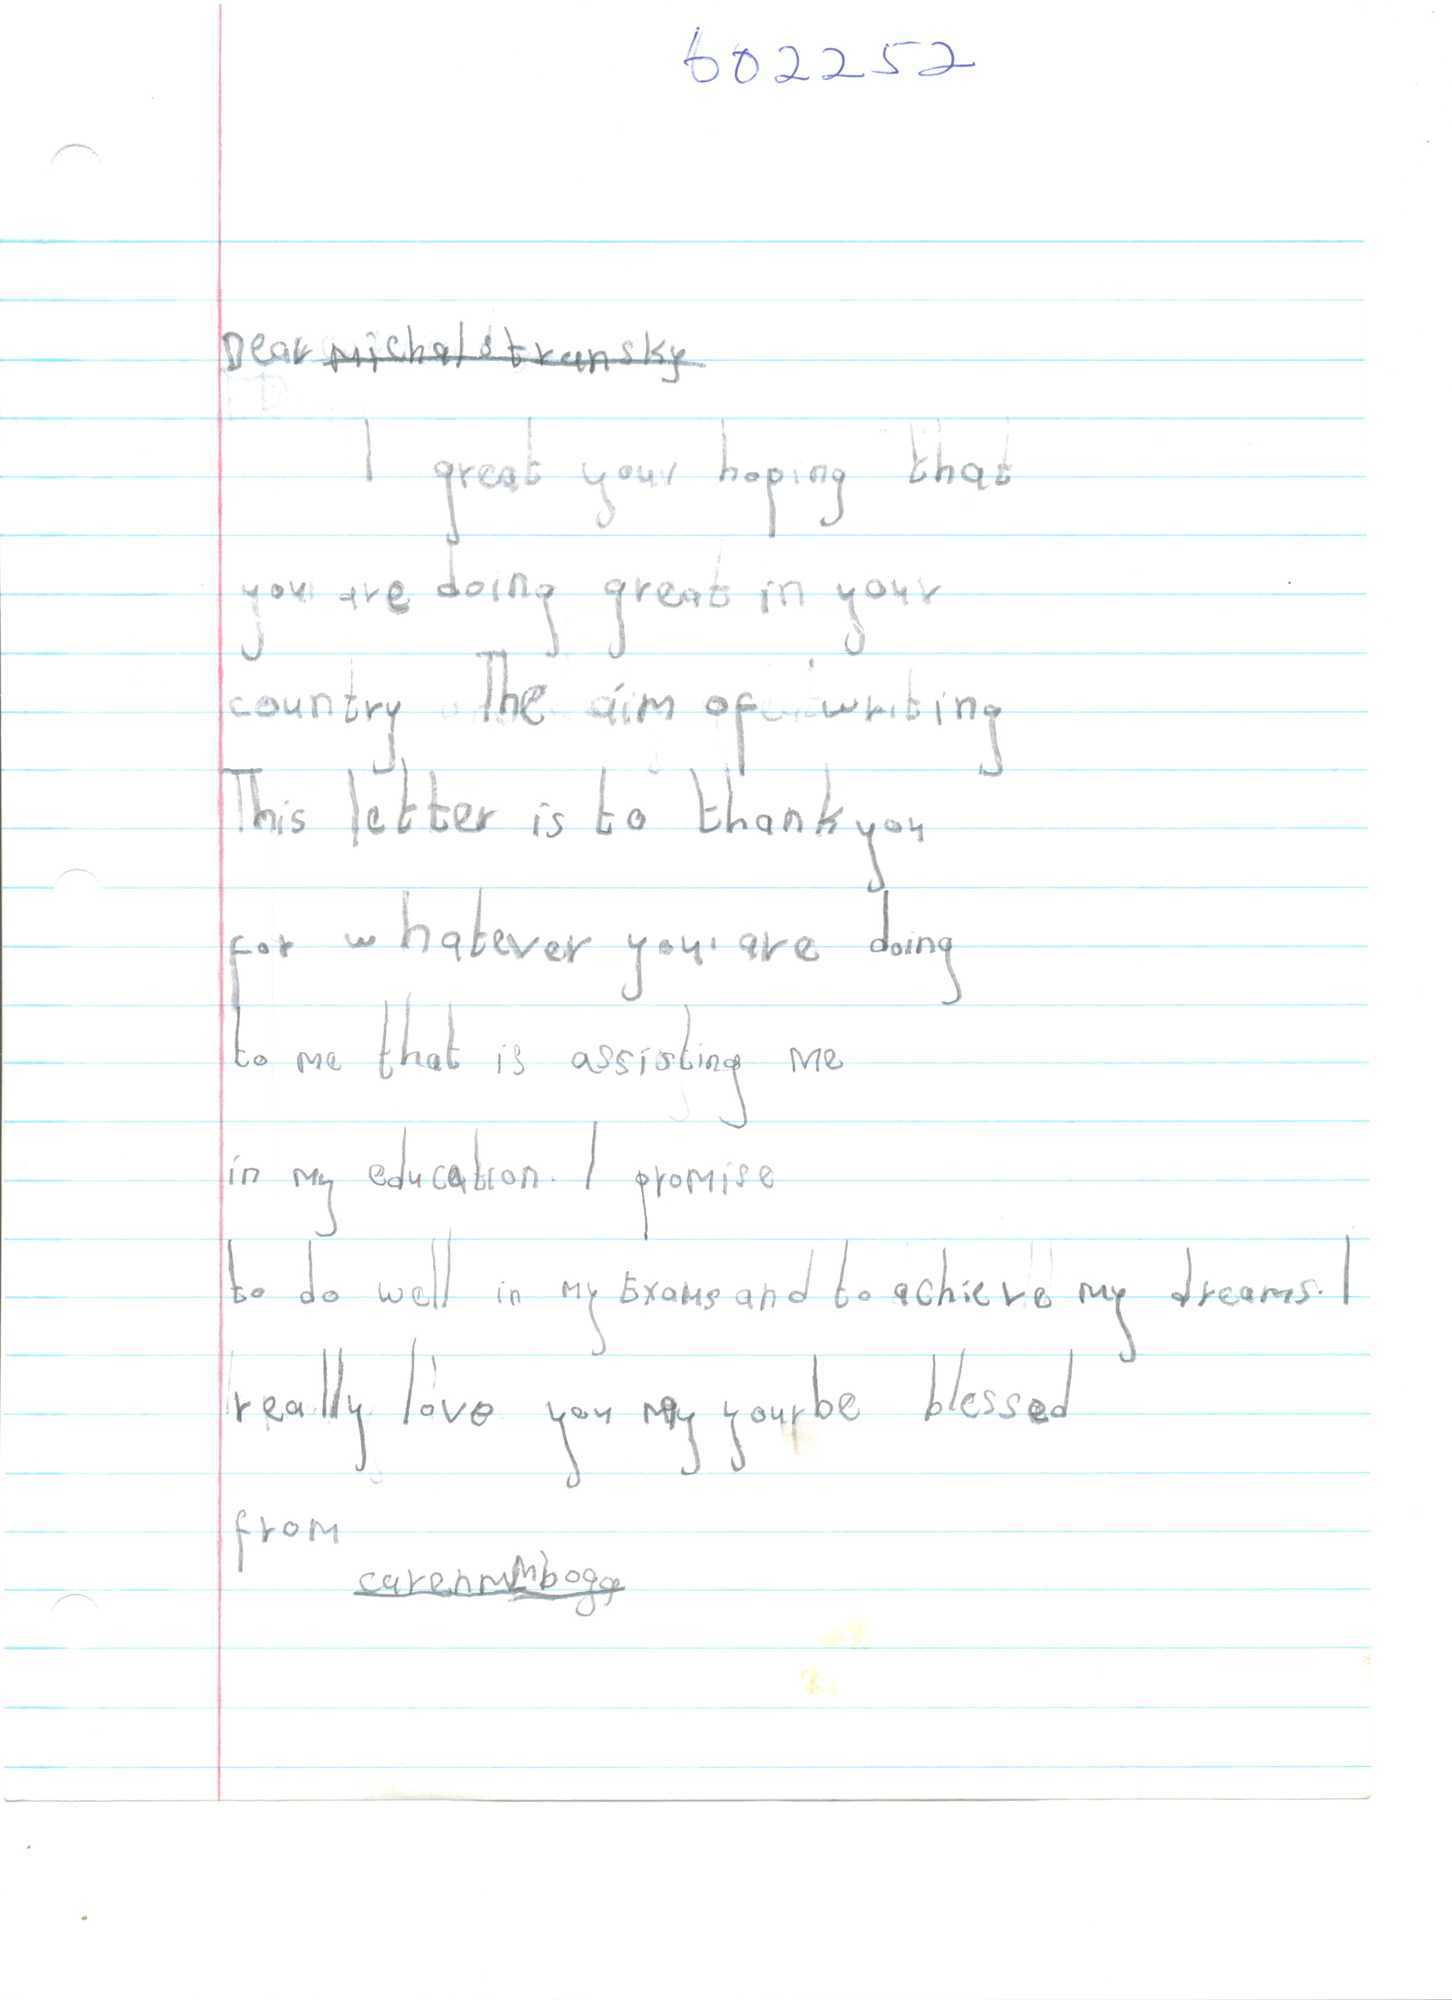 602252
Dear Michal Stransky
I great your hoping that
you are doing great in your
country The aim of writing
This letter is to thank you
for whatever you are doing
to me that is assisting me
in my education. I promise
to do well in my Exams and to achieve my dreams. I
really love you my your be blessed
from